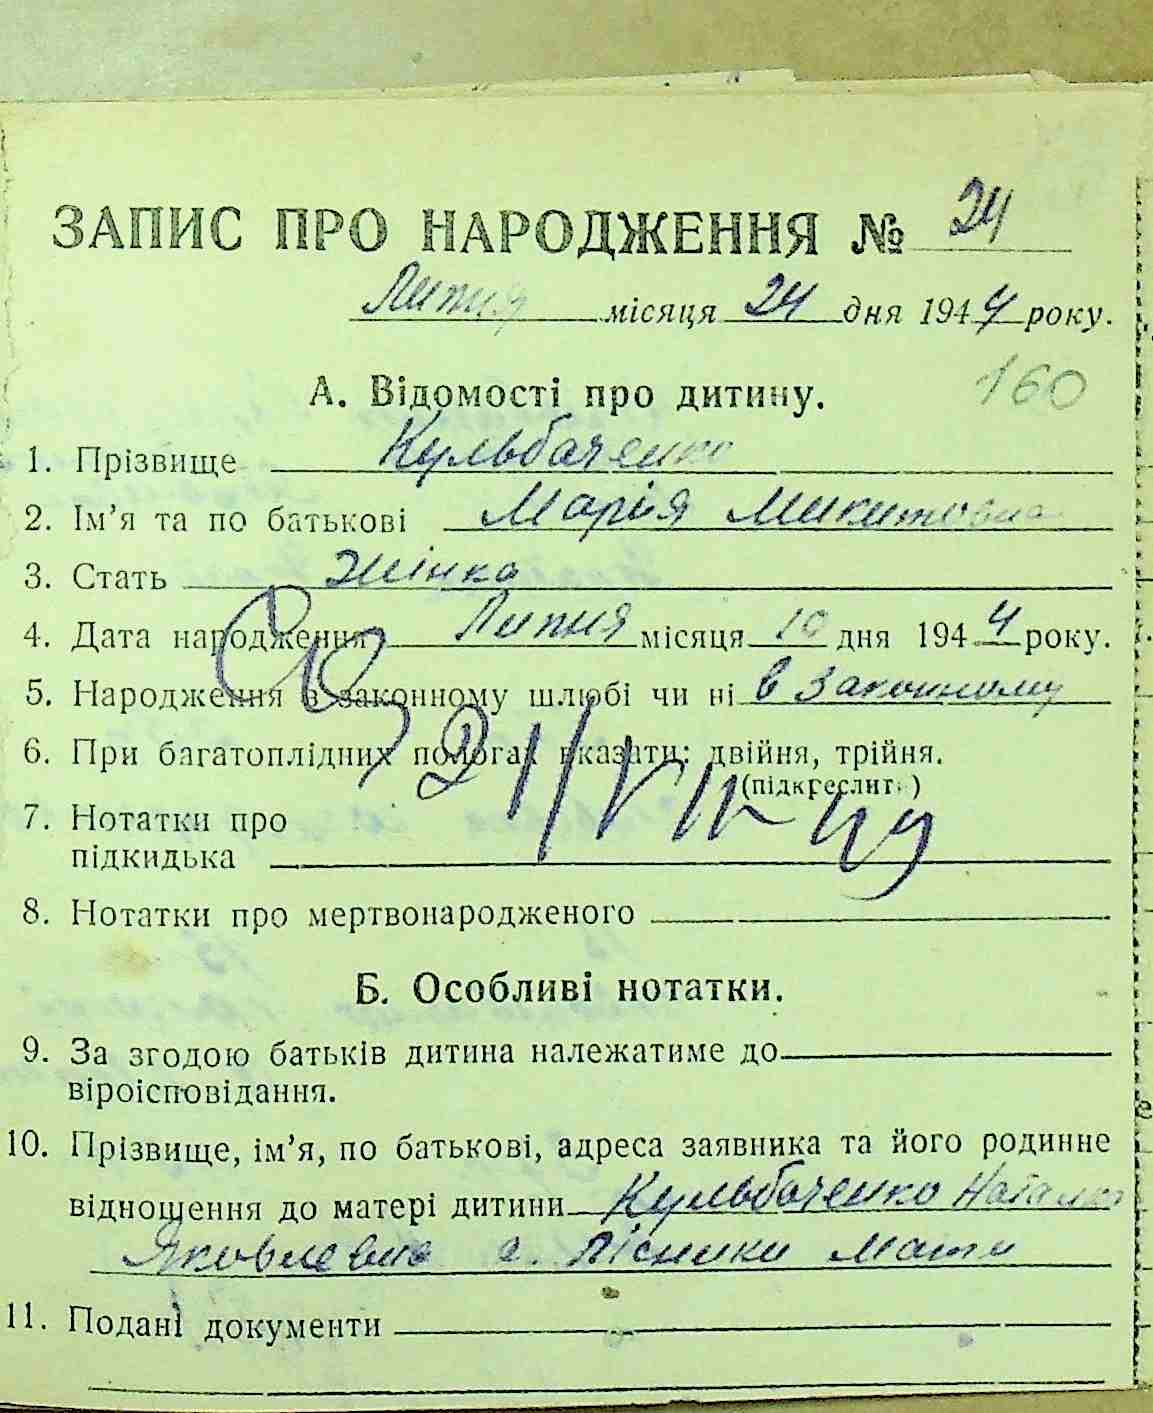 ЗАПИС ПРО НАРОДЖЕННЯ № 24
Липня місяця 24 дня 1944 року.
А. Відомості про дитину. 160
1. Прізвище Кульбаченко
2. Ім'я та по батькові Марія Микитовна
3. Стать Жінка
4. Дата народження Липня місяця 10 дня 1944 року.
5. Народження в законному шлюбі чи ні в законному
6. При багатоплідних пологах вказати: двійня, трійня.
(підкреслить)
21/VII 49
7. Нотатки про
підкидька
8. Нотатки про мертвонародженого
Б. Особливі нотатки.
9. За згодою батьків дитина належатиме до
віроісповідання.
10. Прізвище, ім'я, по батькові, адреса заявника та його родинне
відношення до матері дитини Кульбаченко Наталка
Яковлевна с. Пісники мати
11. Подані документи